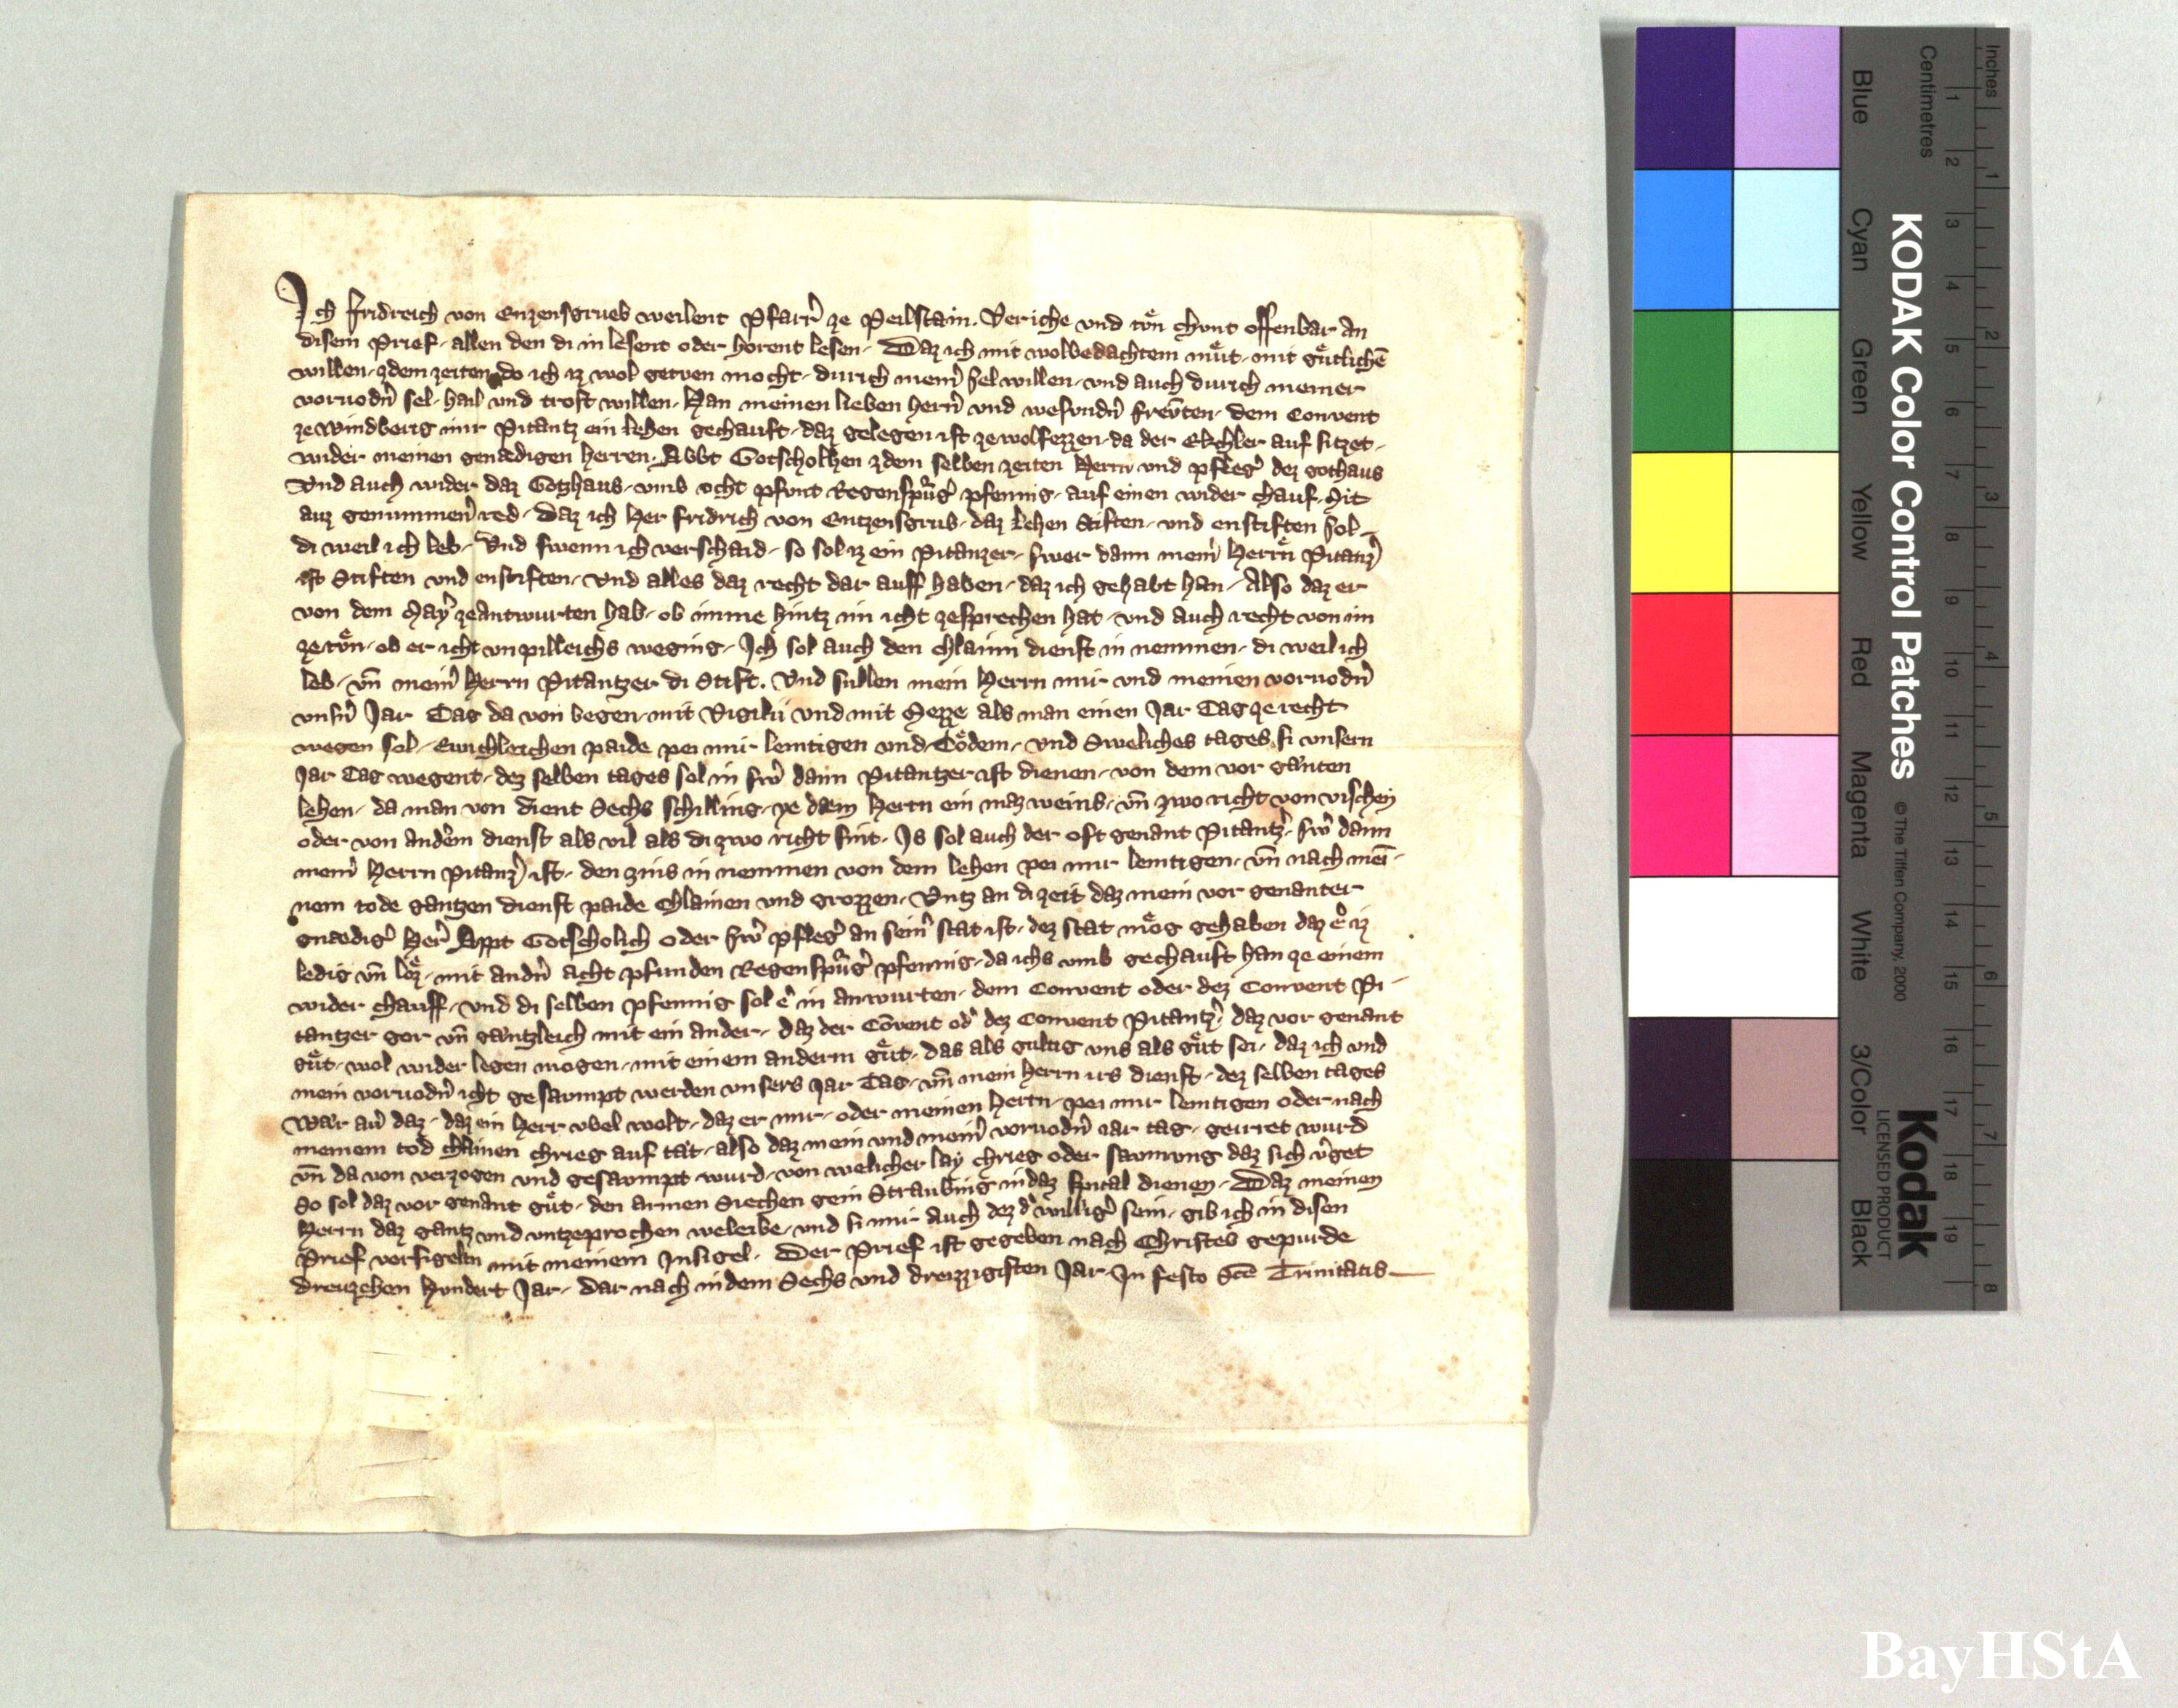 Ich fridreich von Enzensgrueb weilent Pfarr̉ ze Peilstain. Veriche vnd tuͦn chunt offenbar an
disem Prief. allen den di in lesent oder horent lesen. Daz ich mit wolbedachtem muͦt. mit guͤtlichē
willen. zdem zeiten do ich iz wol getuen mocht. durich mein̉ sel willen. vnd auch durich meiner
voruodn̉ sel. hail vnd trost willen. Han meinen lieben hern̉ vnd wesundn̉ frevͤten. dem Convent
ze Windberig mir Pitantz ein lehen gechauft. daz gelegen ist ze wolfezzen. da der Ekchler auf sitzet.
wider meinen genædigen herren. Abbt Gotscholhen zdem selben zeiten Herrn vnd pfleg̉ dez gothaus
Vnd auch wider daz Gotzhaus. vmb ocht pfunt Regenspuͦrg̉ pfennig. auf einen wider chauf. Mit
auz genummen̉ red. Daz ich Her fridrich von Entzensgrub. daz Lehen Stiften. vnd enstiften sol.
di weil ich leb. Vnd swenn ich verschaid. so sol iz ein Pitanzer. swer dann mein̉ Herrn̉ Pitanz̉
ist Stiften vnd enstiften. Vnd alles daz recht dar auff haben. daz ich gehabt han. Also daz er
von dem Maỷ ze antwurten hab. ob imme hintz im icht zesprechen hat. vnd auch recht von im
ze tuͦn. ob er icht vnpilleichs weging. Ich sol auch den chlainn dienst in nemmen. di weil ich
leb. vn̄ mein̉ Herrn Pitantzer di Stift. Vnd sullen mein Herrn mir vnd meinen voruodn̉
vnsn̉ Jar Tag da von begen. mit Vigilii vnd mit Mezze als man einen Jar Tag ze recht
wegen sol. Ewichleichen paide pei mir lemtigen vnd Tödem. Vnd Sweliches tages si vnsern
Jar Tag wegent. dez selben tages sol in sw̉ dann Pitantzer ist dienen. von dem vor gānten
lehen. da man von dient Sechs schilling. ye dem Herrn ein maz weins. vn̄ zwo richt von vischen
oder von andern dienst als vil als di zwo richt sint. Is sol auch der oft genant Pitantz̉. sw̉ dann
mein̉ Herrn Pitanz̉ ist. den zins in nemmen von dem lehen pei mir lemtigen. vn̄ nach mei
nem tode gantzen dienst paide chlainen vnd grozzen. Vntz an di zeit daz mein vor genanter
gnædig̉ Her̉ Appt Gotscholich oder sw̉ pfleg̉ an sein̉ stat ist. dez stat muͦg gehaben daz er̉ iz
ledig vn̄ loͤz. mit andn̉ acht pfunden Regenspuͦrg̉ pfennig. da ichs vmb gechauft han ze einem
wider chauff. vnd di selben pfennig sol ẻ in anwurten. dem Convent oder dez Convent Pi
tantzer gor vn̄ gantzleich mit ein ander. daz der Cōvent od̉ dez Convent Pitantz̉. daz vor genant
guͦt. wol wider legen mogen. mit einem anderm guͦt. das als gultig vns als guͦt sei. daz ich vnd
mein voruodn̉ icht gesaumpt werden vnsers Jar Tag. vn̄ mein Herrn irs dienst. dez selben tages
Wær au̓ daz. daz ein Herr vbel wolt. daz er mir. oder meinen Herrn. pei mir lemtigen oder nach
meinem tod chlainen chrieg auf tæt. also daz mein vnd mein̉ voruodn̉ iar tag. geirret wurd
vn̄ da von verzogen vnd gesaumpt wurd. von welicher lay chrieg oder saumung daz sich v̉get
So sol daz vor genant guͦt. den armen Siechen gein Straubing in daz Spital dienen. Daz meinen
Herrn daz gantz vnd vntzeprochen weleibe. vnd si mir auch dez d̉ willig̉ sein. gib ich in disen
Prief versigelten mit meinem Insigel. Der Prief ist gegeben nach Christes gepurde
dreuzehen Hundert Jar. dar nach in dem Sechs vnd dreizzigisten Jar In festo Sc̄e Trinitatis
Inches
Centimetres
KODAK Color Control Patches
© The Tiffen Company, 2000
Kodak
LICENSED PRODUCT
Blue
Cyan
Green
Yellow
Red
Magenta
White
3/Color
Black
1
2
3
4
5
6
7
8
9
10
11
12
13
14
15
16
17
18
19
1
2
3
4
5
6
7
8
BayHStA